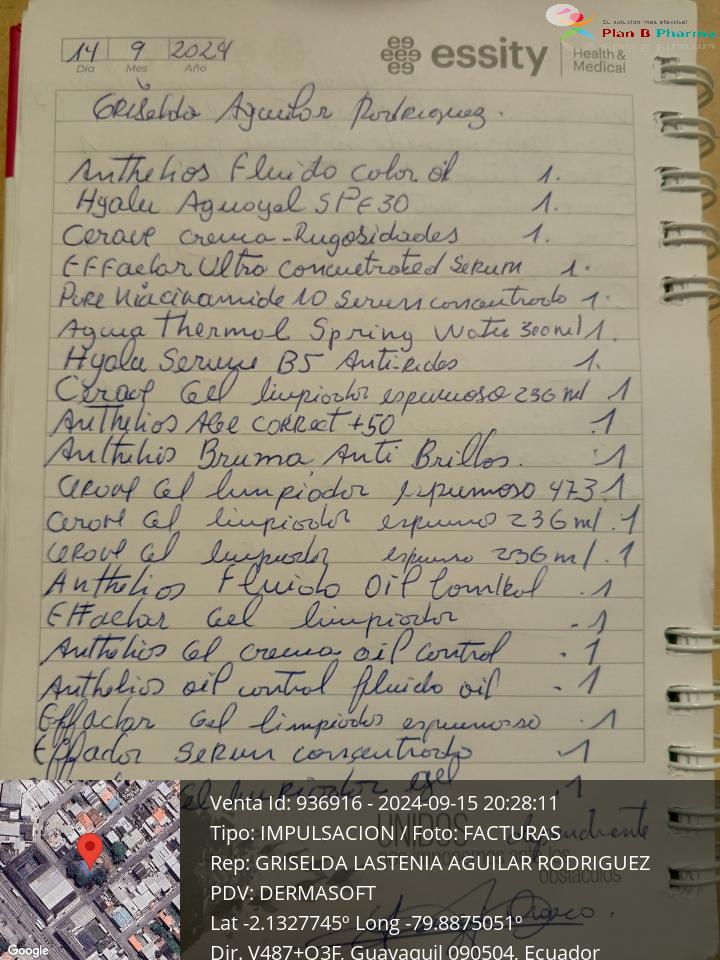 Su solución más efectiva!
Plan B Pharma
14 9 2024
Día Mes Año
essity
Health &
Medical
Griselda Aguilar Rodriguez.
Anthelios Fluido color oil 1.
Hyalu Aguagel SPF30 1.
Cerave crema-Rugosidades 1.
EFFaclar Ultra Concuetrated Serum 1.
Pure Niacinamide 10 Serum concentrado 1.
Agua Thermal Spring Water 300ml 1.
Hyalu Serum B5 Anti-rides 1.
Cerave Gel limpiador espumoso 236 ml 1
Anthelios Age correct +50 .1
Anthelios Bruma Anti Brillos. .1
Cerave Gel limpiador espumoso 473.1
Cerave Gel limpiador espumo 236 ml .1
Cerave Gel limpiador espumo 236 ml .1
Anthelios Fluido Oil Control .1
Effaclar Gel limpiador .1
Anthelios Gel crema oil control .1
Anthelios oil control fluido oil .1
Effaclar Gel limpiador espumosso .1
Effaclar Serum concentrado .1
Gel limpiador .1
UNIDOS
obstáculos
Venta Id: 936916 - 2024-09-15 20:28:11
Tipo: IMPULSACION / Foto: FACTURAS
Rep: GRISELDA LASTENIA AGUILAR RODRIGUEZ
PDV: DERMASOFT
Lat -2.1327745º Long -79.8875051º
Dir. V487+Q3F, Guayaquil 090504, Ecuador
Google